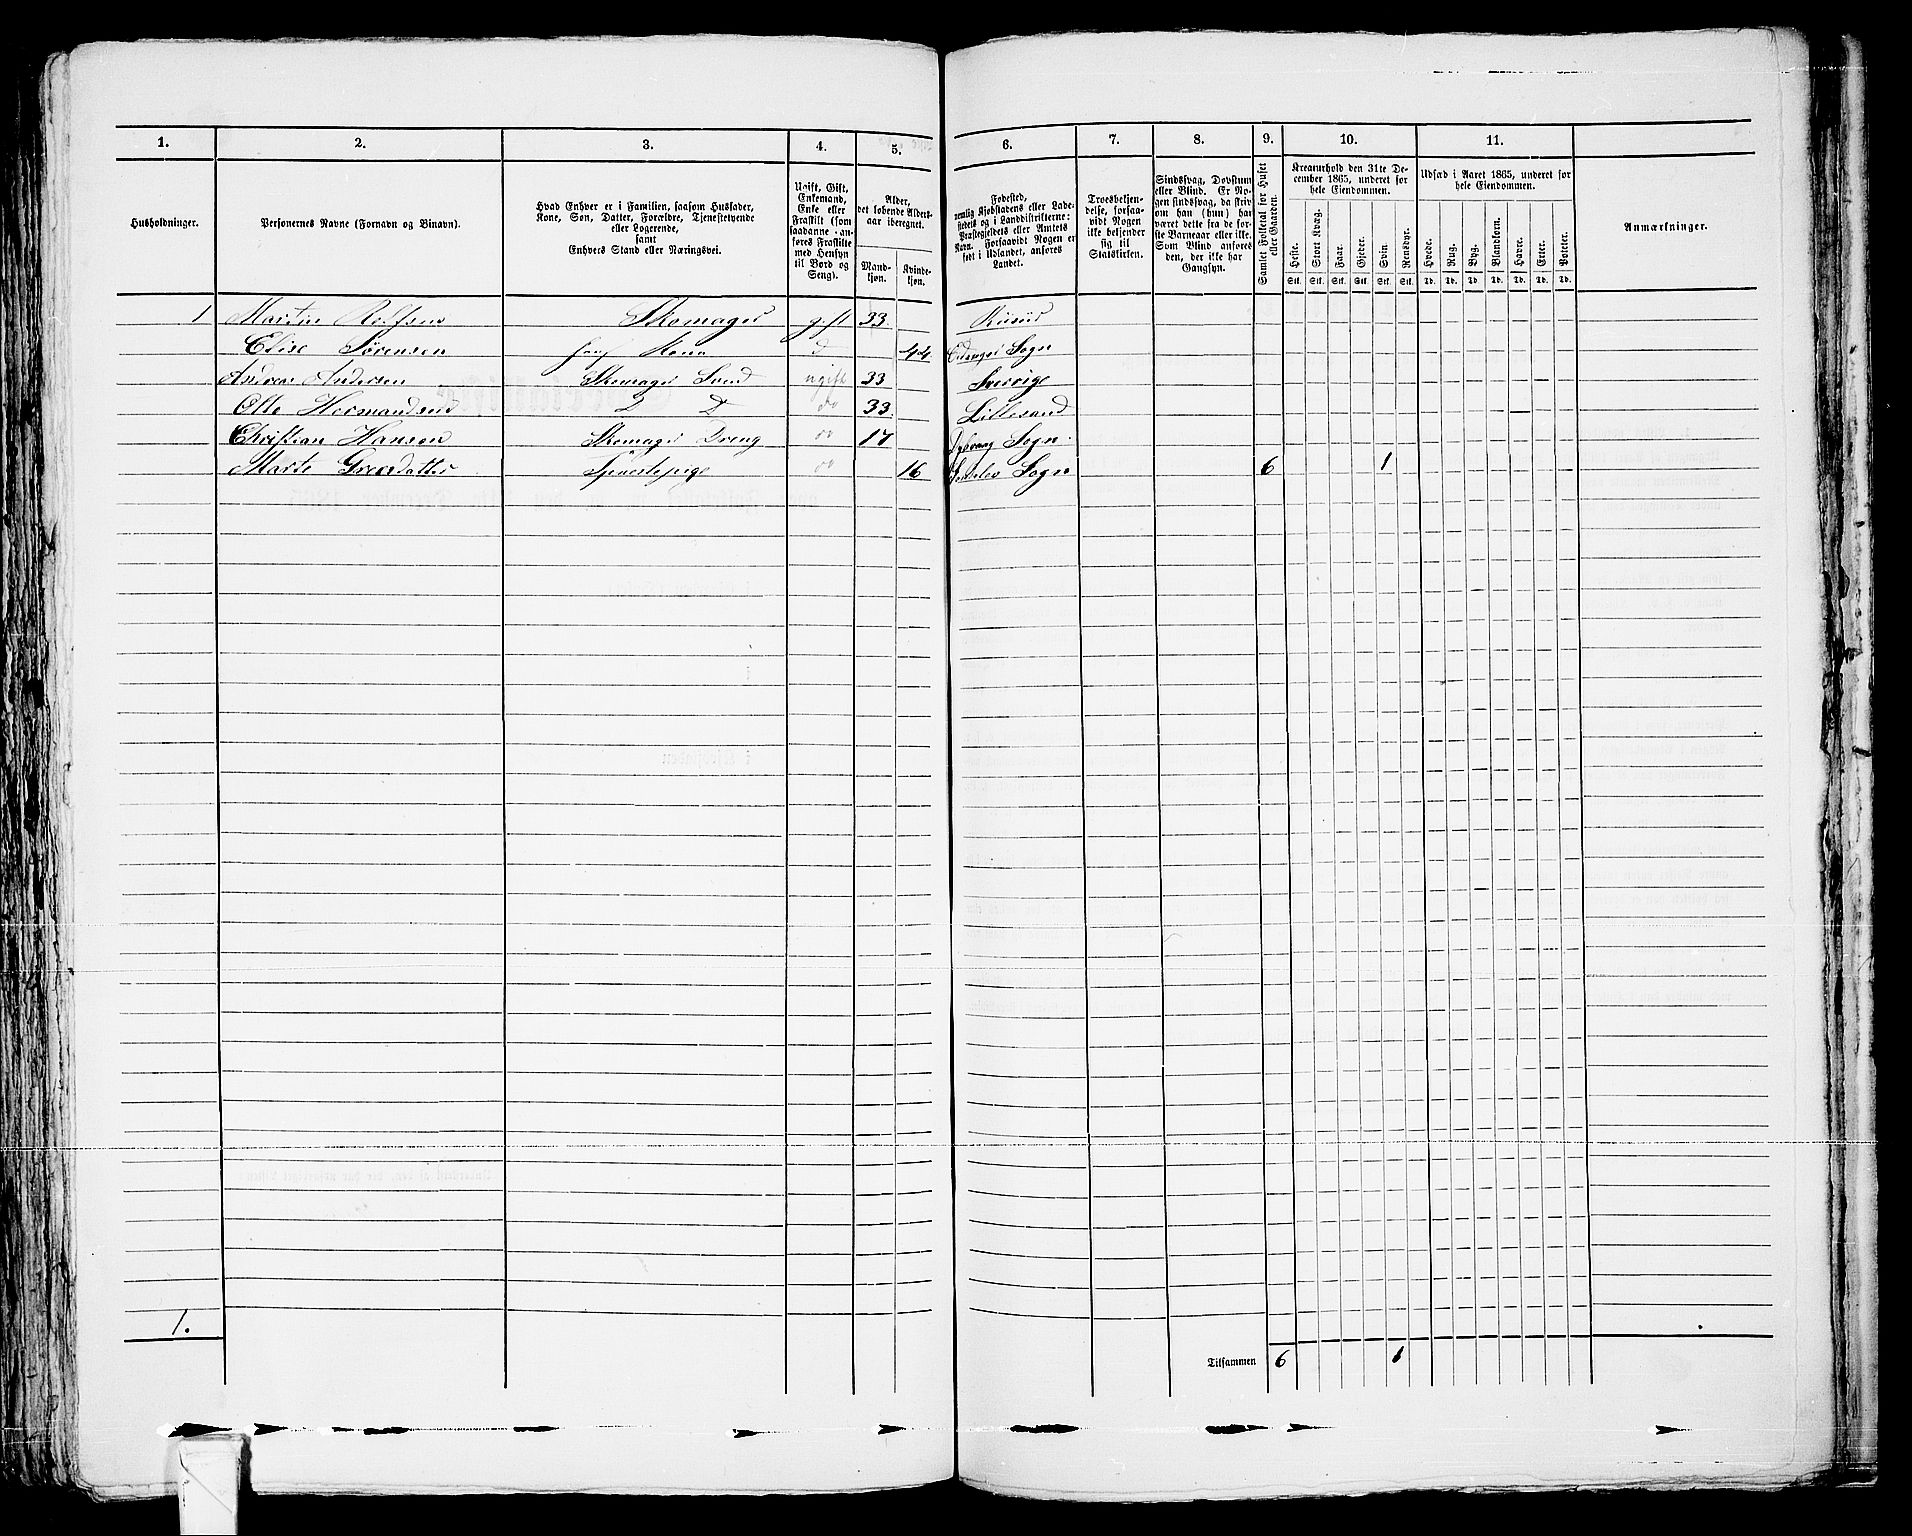 1. 2. 3. 4. 5. 6. 7. 8. 9. 10. 11.
Husholdninger.
Personernes Navne (Fornavn og Binavn).
Hvad Enhver er i Familien, saasom Husfader,
Kone, Søn, Datter, Forældre, Tjenestetyende
eller Logerende,
samt
Enhvers Stand eller Næringsvei.
Ugift, Gift,
Enkemand,
Enke eller
Fraskilt (som
saadanne anføres Fraskilte
med Hensyn
til Bord og
Seng).
Alder,
det løbende Alders-
aar iberegnet.
Mand-
kjøn.
Kvinde-
kjøn.
Fødested,
nemlig Kjøbstadens eller Lade-
stedets og i Landdistrikterne:
Præstegjeldets eller Amtets
Navn. Forsaavidt Nogen er
født i Udlandet, anføres
Landet.
Troesbekjen-
delse, forsaa-
vidt Nogen
ikke bekjender
sig til
Statskirken.
Sindssvag, Døvstum
eller Blind. Er No-
gen sindssvag, da skriv
om han (hun) har
været dette fra de før-
ste Barneaar eller ikke.
Som Blind anføres
den, der ikke har
Gangsyn.
Samlet Folketal for Huset
eller Gaarden.
Kreaturhold den 31te De-
cember 1865, underet for
hele Eiendommen.
Heste. Stort Kvæg. Faar. Gjeder. Svin. Rensdyr.
Stk. Stk. Stk. Stk. Stk. Stk.
Udsæd i Aaret 1865, underet for
hele Eiendommen.
Hvede. Rug. Byg. Blandkorn. Havre. Erter. Poteter.
Td. Td. Td. Td. Td. Td. Td.
Anmærkninger.
1 Martin Skomager gift 33.
Elise Sørensen Kone 44 Sogn
Andreas Andersen Skomager Svend ugift 33 Sverrige
Olle Hermandsen D D do 33. Lillesand
Christian Hansen Skomager Dreng do 17 Dybvaag Sogn.
Marte Tjenestepige do 16 Søndeløv Sogn 6 1
1.
Tilsammen 6 1